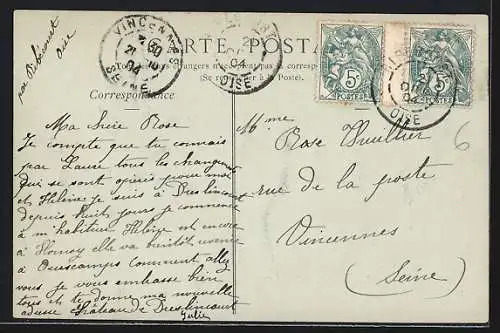 par Ribécourt
Oise
VINCENNES
21 10
04
SEINE
CARTE POSTALE
Correspondance
(Se renseigner à la Poste).
04
OISE
5c
POSTES
5c
POSTES
04
OISE
Ma chère Rose
Je compte que tu connais
par Laure tous les changements
qui se sont opérés pour moi
et Hélène je suis à Dreslincourt
depuis huit jours je commence
à m'habituer Hélène est encore
à elle va bientôt venir
à Ourscamps comment allez
vous je vous embrasse bien
tous et te donne ma nouvelle
adresse château de Dreslincourt
Julie
Mme
Rose Vuillier
rue de la poste
Vincennes
(Seine)
6